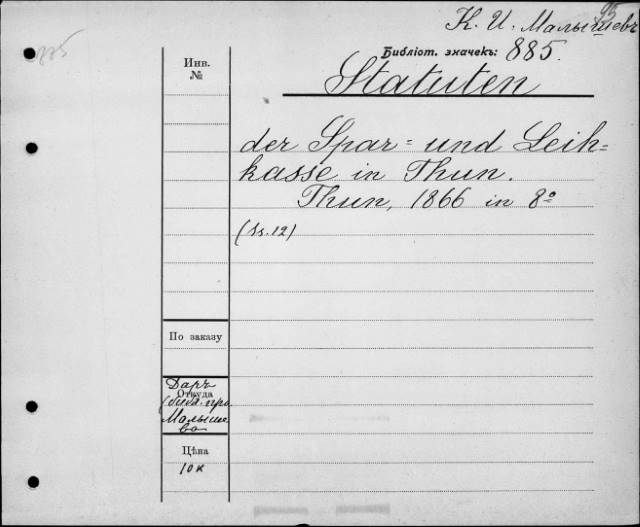 К. И. Малышевъ
95
885
Библіот. значекъ: 885.
Инв.
№
Statuten
der Spar= und Leih=
kasse in Thun.
Thun, 1866 in 8º
(Ss. 12)
По заказу
Даръ
Откуда
Малыше
ва
Цѣна
10 к